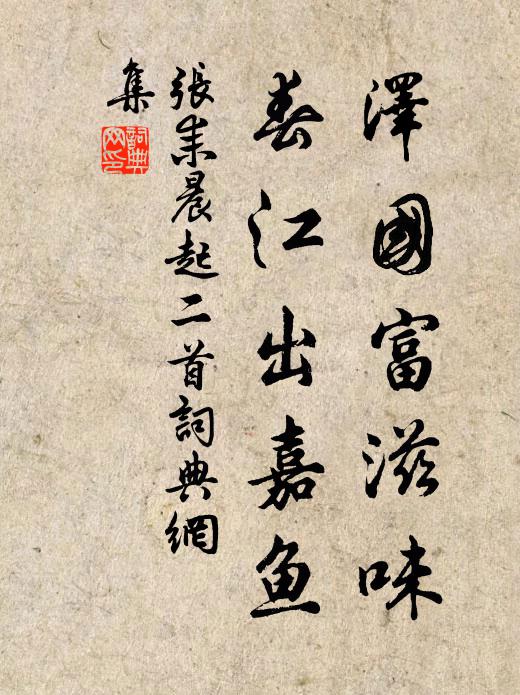 澤國富滋味
春江出嘉魚
張耒晨起二首詞典網
集
詞典網印